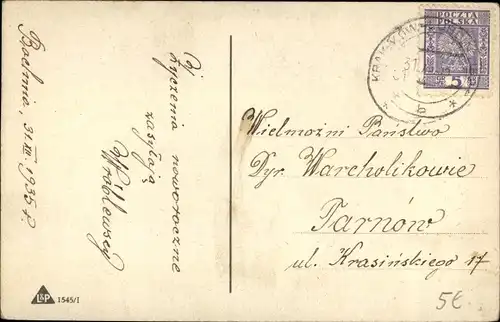 Bochnia, 31.XII.1935 r.
Życzenia noworoczne
zasyłają
Wróblewscy
L&P 1545/I
POCZTA
POLSKA
5
KRAKÓW
31
b
Wielmożni Państwo
Dyr. Warcholikowie
Tarnów
ul. Krasińskiego 17
5€